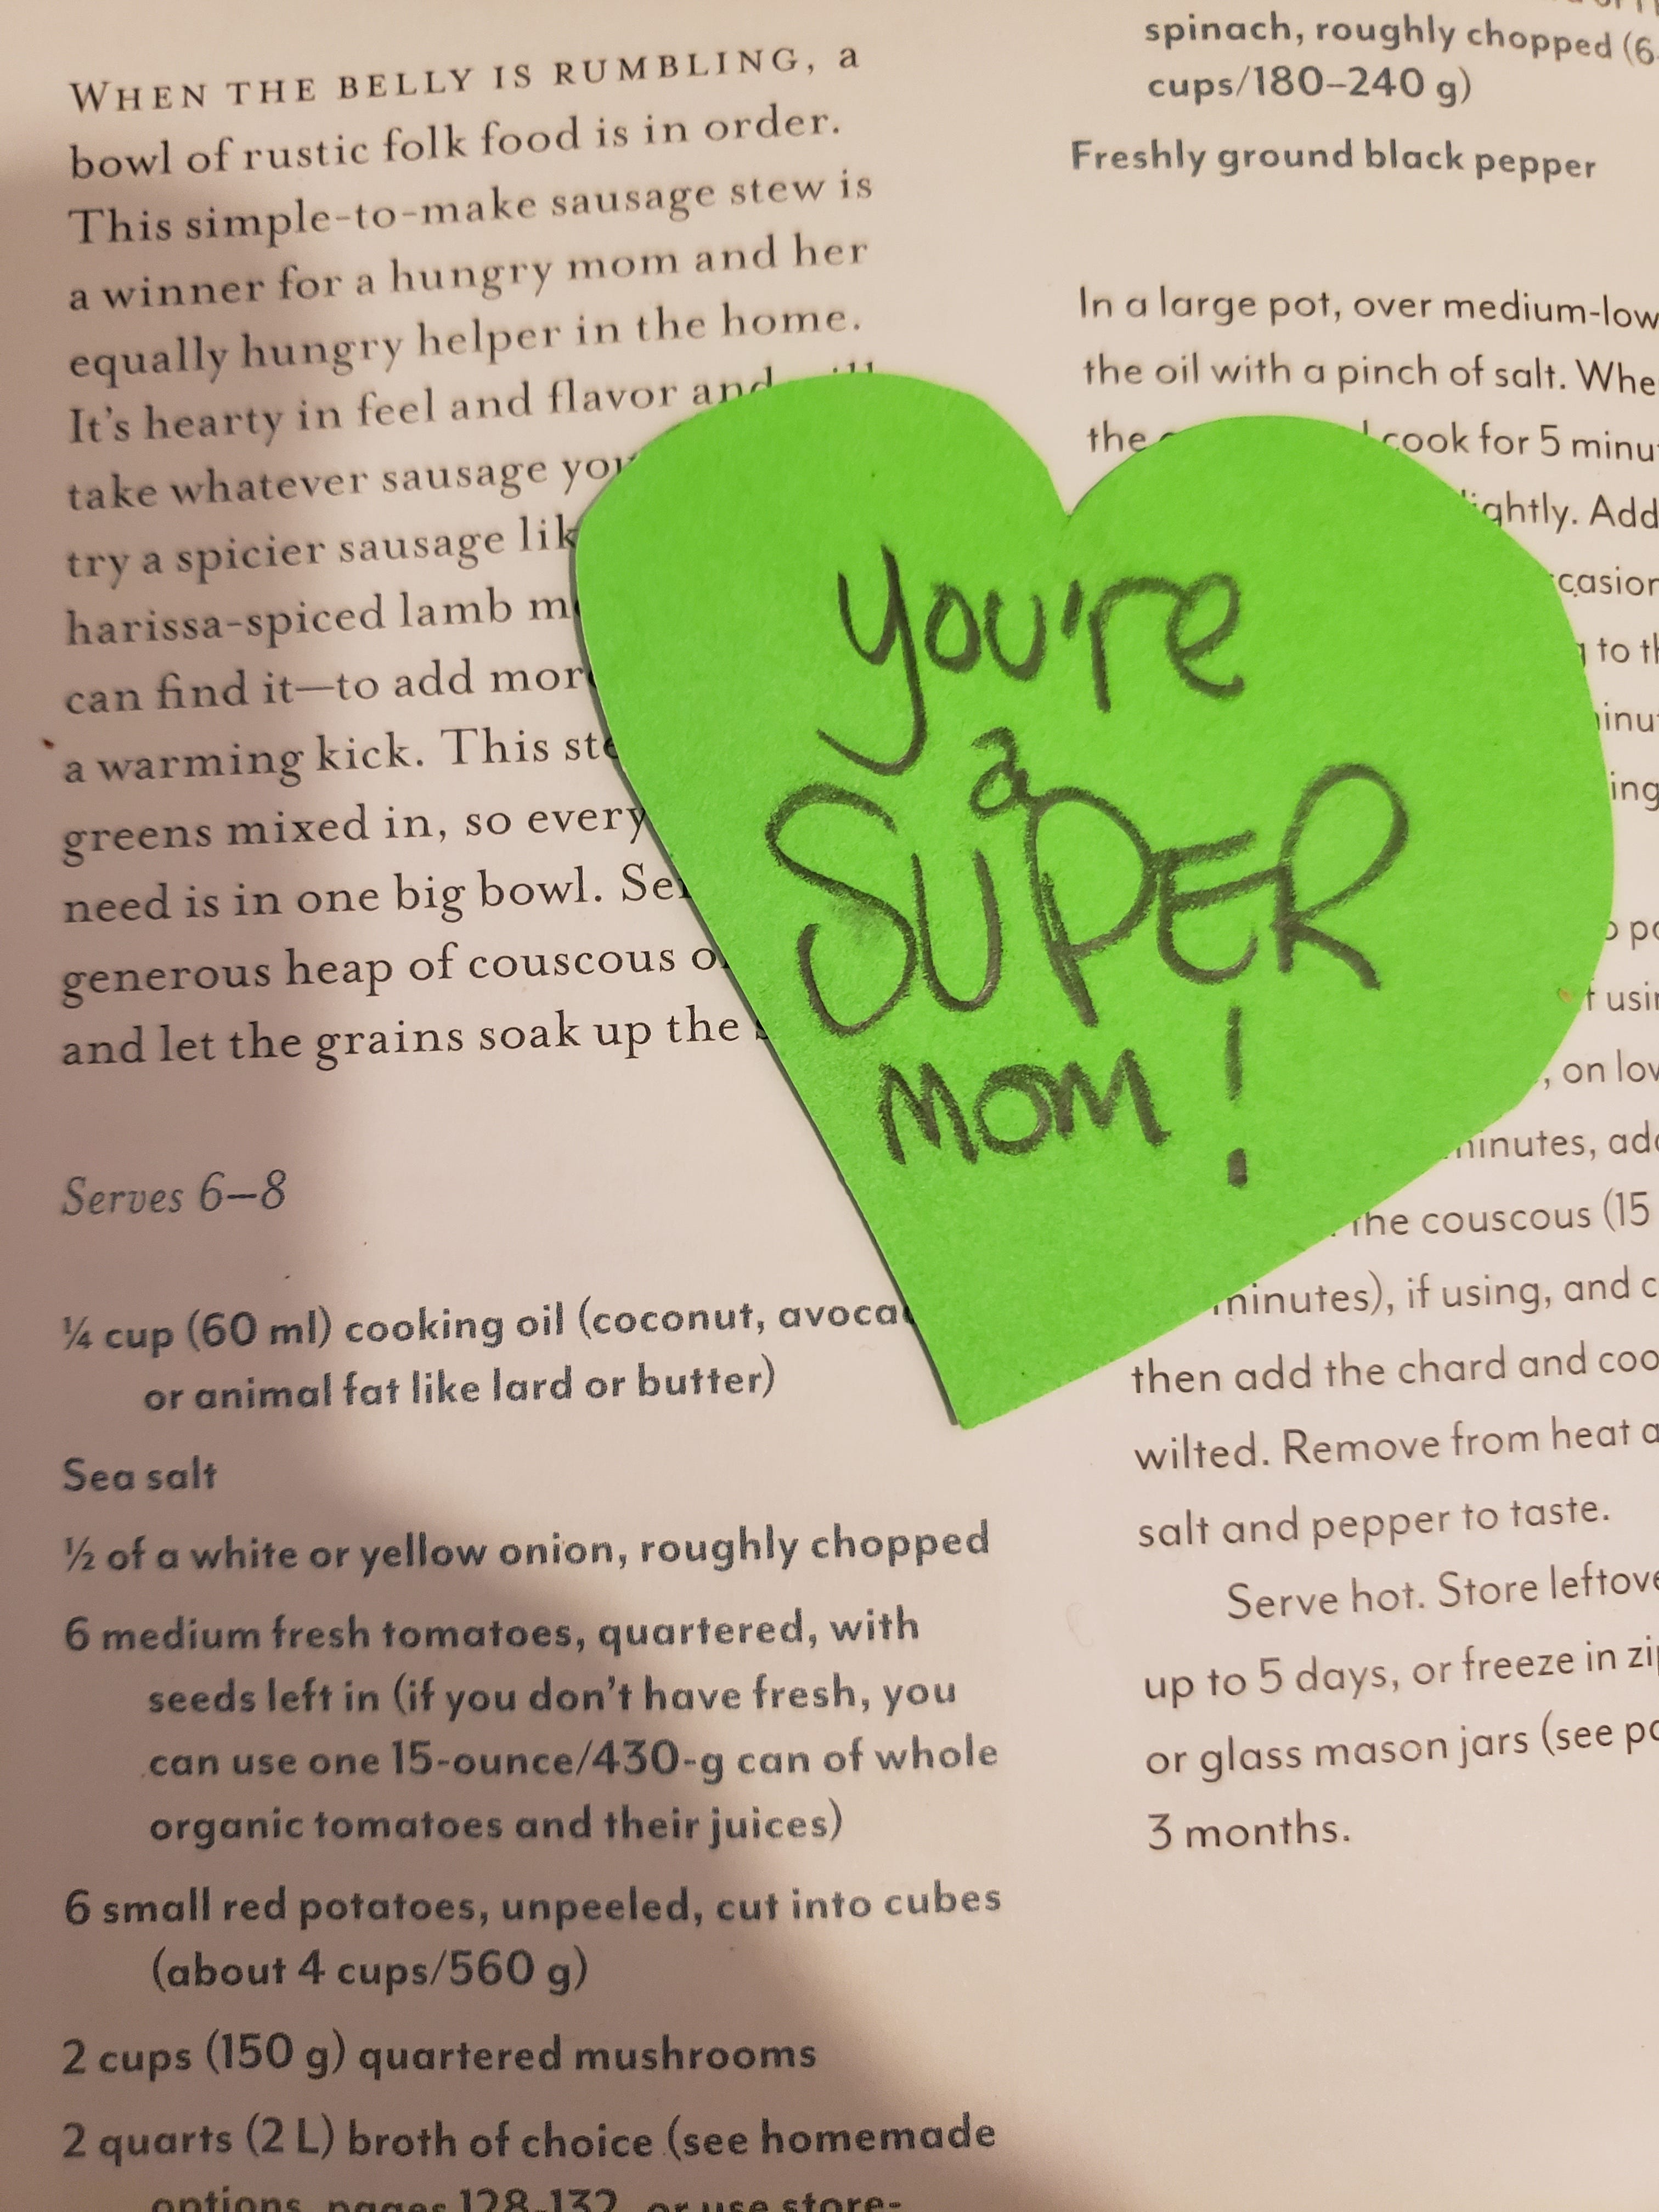 WHEN THE BELLY IS RUMBLING, a
bowl of rustic folk food is in order.
This simple-to-make sausage stew is
a winner for a hungry mom and her
equally hungry helper in the home.
It's hearty in feel and flavor and
take whatever sausage
try a spicier sausage
harissa-spiced lamb
can find it—to add
a warming kick. This
greens mixed in, so every
need is in one big bowl.
generous heap of couscous
and let the grains soak up the
Serves 6–8
¼ cup (60 ml) cooking oil (coconut,
or animal fat like lard or butter)
Sea salt
½ of a white or yellow onion, roughly chopped
6 medium fresh tomatoes, quartered, with
seeds left in (if you don't have fresh, you
can use one 15-ounce/430-g can of whole
organic tomatoes and their juices)
6 small red potatoes, unpeeled, cut into cubes
(about 4 cups/560 g)
2 cups (150 g) quartered mushrooms
2 quarts (2 L) broth of choice (see homemade
options, pages 128-132, or use store-
you're
a
SUPER
MOM!
spinach, roughly chopped (6
cups/180–240 g)
Freshly ground black pepper
In a large pot, over medium-low
the oil with a pinch of salt.
the cook for 5
Add
to
using
, on
minutes,
the couscous (15
minutes), if using, and
then add the chard and
wilted. Remove from heat
salt and pepper to taste.
Serve hot. Store
up to 5 days, or freeze in
or glass mason jars (see
3 months.